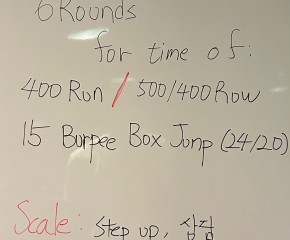 6 Rounds
for time of:
400 Run / 500/400 Row
15 Burpee Box Jump (24/20)
Scale: Step up,